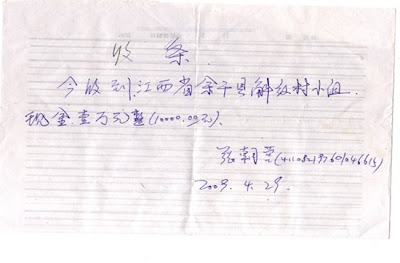 收条
今收到江西省余干县解放村小组
现金壹万元整(10000.00元).
2009.4.29.